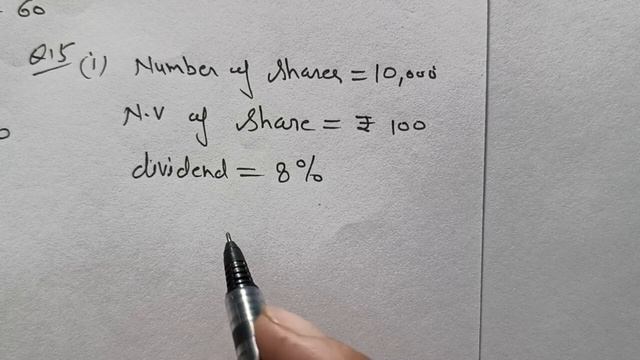 60
Q.15 (i) Number of shares = 10,000
N.V of share = ₹ 100
dividend = 8%